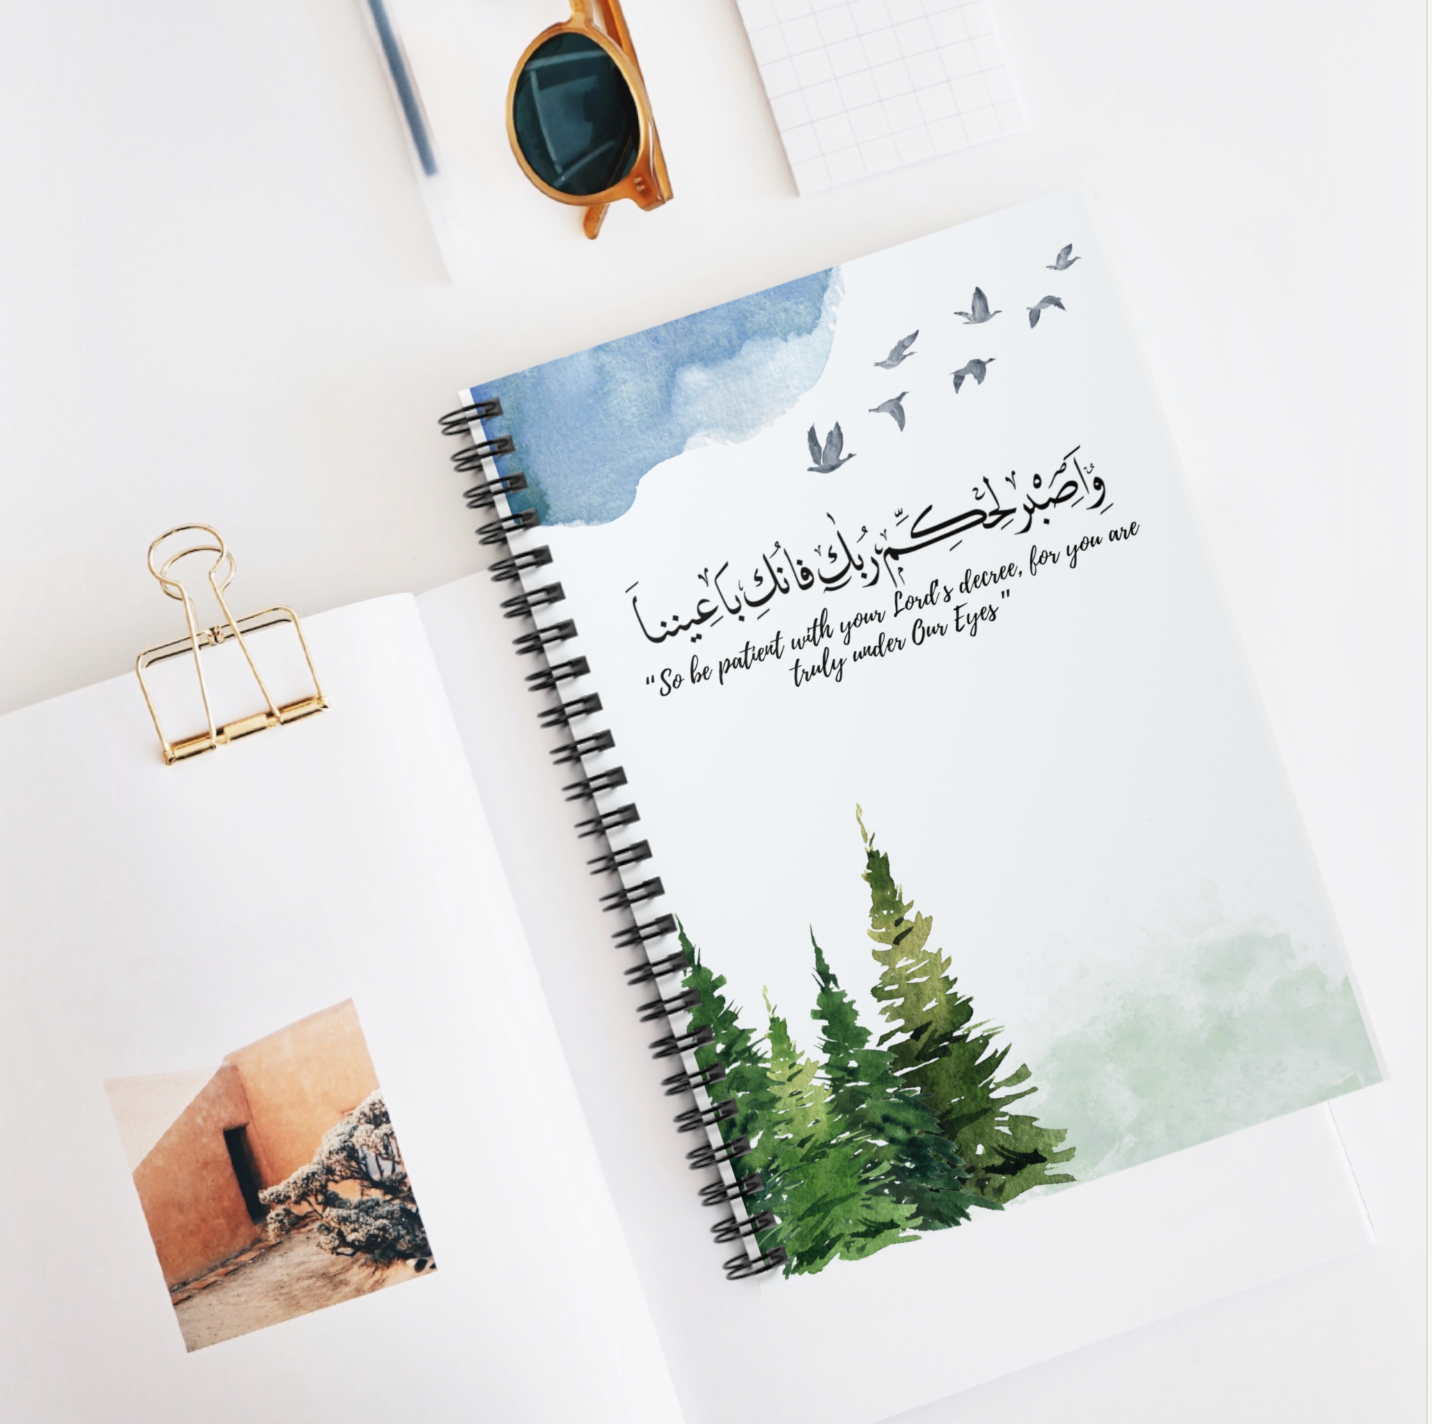 وَاصْبِرْ لِحُكْمِ رَبِّكَ فَإِنَّكَ بِأَعْيُنِنَا
“So be patient with your Lord's decree, for you are
truly under Our Eyes”